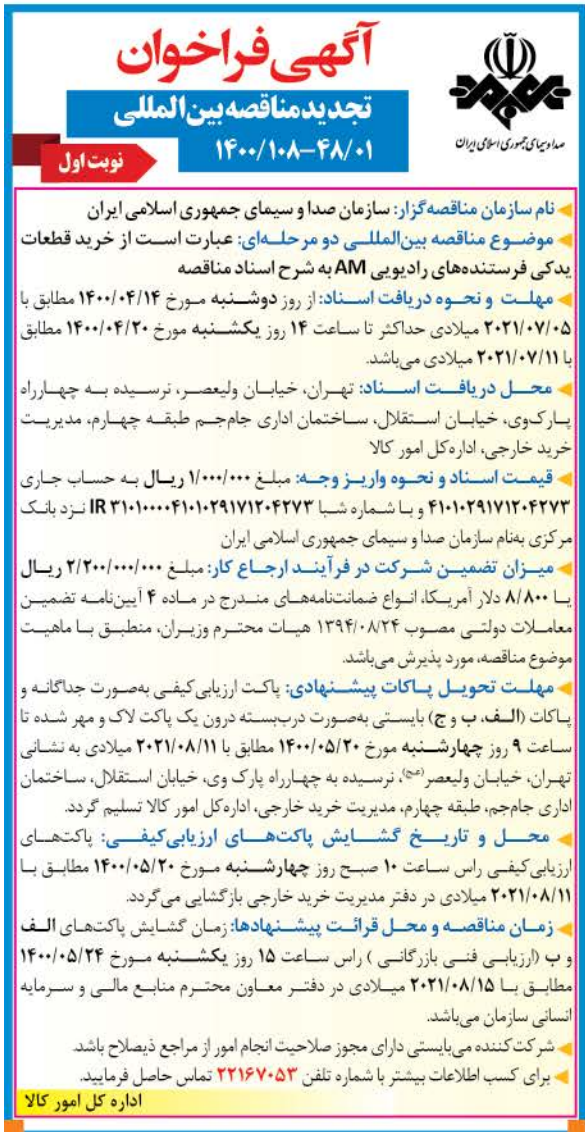 آگهی فراخوان
تجدید مناقصه بین‌المللی
۱۴۰۰/۱۰۸-۴۸/۰۱
نوبت اول
صدا و سیمای جمهوری اسلامی ایران
نام سازمان مناقصه‌گزار: سازمان صدا و سیمای جمهوری اسلامی ایران
موضوع مناقصه بین‌المللی دو مرحله‌ای: عبارت است از خرید قطعات
یدکی فرستنده‌های رادیویی AM به شرح اسناد مناقصه
مهلت و نحوه دریافت اسناد: از روز دوشنبه مورخ ۱۴۰۰/۰۴/۱۴ مطابق با
۲۰۲۱/۰۷/۰۵ میلادی حداکثر تا ساعت ۱۴ روز یکشنبه مورخ ۱۴۰۰/۰۴/۲۰ مطابق
با ۲۰۲۱/۰۷/۱۱ میلادی می‌باشد.
محل دریافت اسناد: تهران، خیابان ولیعصر، نرسیده به چهارراه
پارک‌وی، خیابان استقلال، ساختمان اداری جام‌جم طبقه چهارم، مدیریت
خرید خارجی، اداره‌کل امور کالا
قیمت اسناد و نحوه واریز وجه: مبلغ ۱/۰۰۰/۰۰۰ ریال به حساب جاری
۴۱۰۱۰۲۹۱۷۱۲۰۴۲۷۳ و با شماره شبا IR ۳۱۰۱۰۰۰۰۴۱۰۱۰۲۹۱۷۱۲۰۴۲۷۳ نزد بانک
مرکزی به‌نام سازمان صدا و سیمای جمهوری اسلامی ایران
میزان تضمین شرکت در فرآیند ارجاع کار: مبلغ ۲/۲۰۰/۰۰۰/۰۰۰ ریال
یا ۸/۸۰۰ دلار آمریکا، انواع ضمانت‌نامه‌های مندرج در ماده ۴ آیین‌نامه تضمین
معاملات دولتی مصوب ۱۳۹۴/۰۸/۲۴ هیات محترم وزیران، منطبق با ماهیت
موضوع مناقصه، مورد پذیرش می‌باشد.
مهلت تحویل پاکات پیشنهادی: پاکت ارزیابی‌کیفی به‌صورت جداگانه و
پاکات (الف، ب و ج) بایستی به‌صورت دربسته درون یک پاکت لاک و مهر شده تا
ساعت ۹ روز چهارشنبه مورخ ۱۴۰۰/۰۵/۲۰ مطابق با ۲۰۲۱/۰۸/۱۱ میلادی به نشانی
تهران، خیابان ولیعصر(عج)، نرسیده به چهارراه پارک وی، خیابان استقلال، ساختمان
اداری جام‌جم، طبقه چهارم، مدیریت خرید خارجی، اداره‌کل امور کالا تسلیم گردد.
محل و تاریخ گشایش پاکت‌های ارزیابی‌کیفی: پاکت‌های
ارزیابی‌کیفی راس ساعت ۱۰ صبح روز چهارشنبه مورخ ۱۴۰۰/۰۵/۲۰ مطابق با
۲۰۲۱/۰۸/۱۱ میلادی در دفتر مدیریت خرید خارجی بازگشایی می‌گردد.
زمان مناقصه و محل قرائت پیشنهادها: زمان گشایش پاکت‌های الف
و ب (ارزیابی فنی بازرگانی ) راس ساعت ۱۵ روز یکشنبه مورخ ۱۴۰۰/۰۵/۲۴
مطابق با ۲۰۲۱/۰۸/۱۵ میلادی در دفتر معاون محترم منابع مالی و سرمایه
انسانی سازمان می‌باشد.
شرکت‌کننده می‌بایستی دارای مجوز صلاحیت انجام امور از مراجع ذیصلاح باشد.
برای کسب اطلاعات بیشتر با شماره تلفن ۲۲۱۶۷۰۵۳ تماس حاصل فرمایید.
اداره کل امور کالا